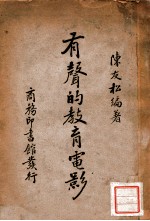 陳友松編著
有聲的教育電影
商務印書館發行